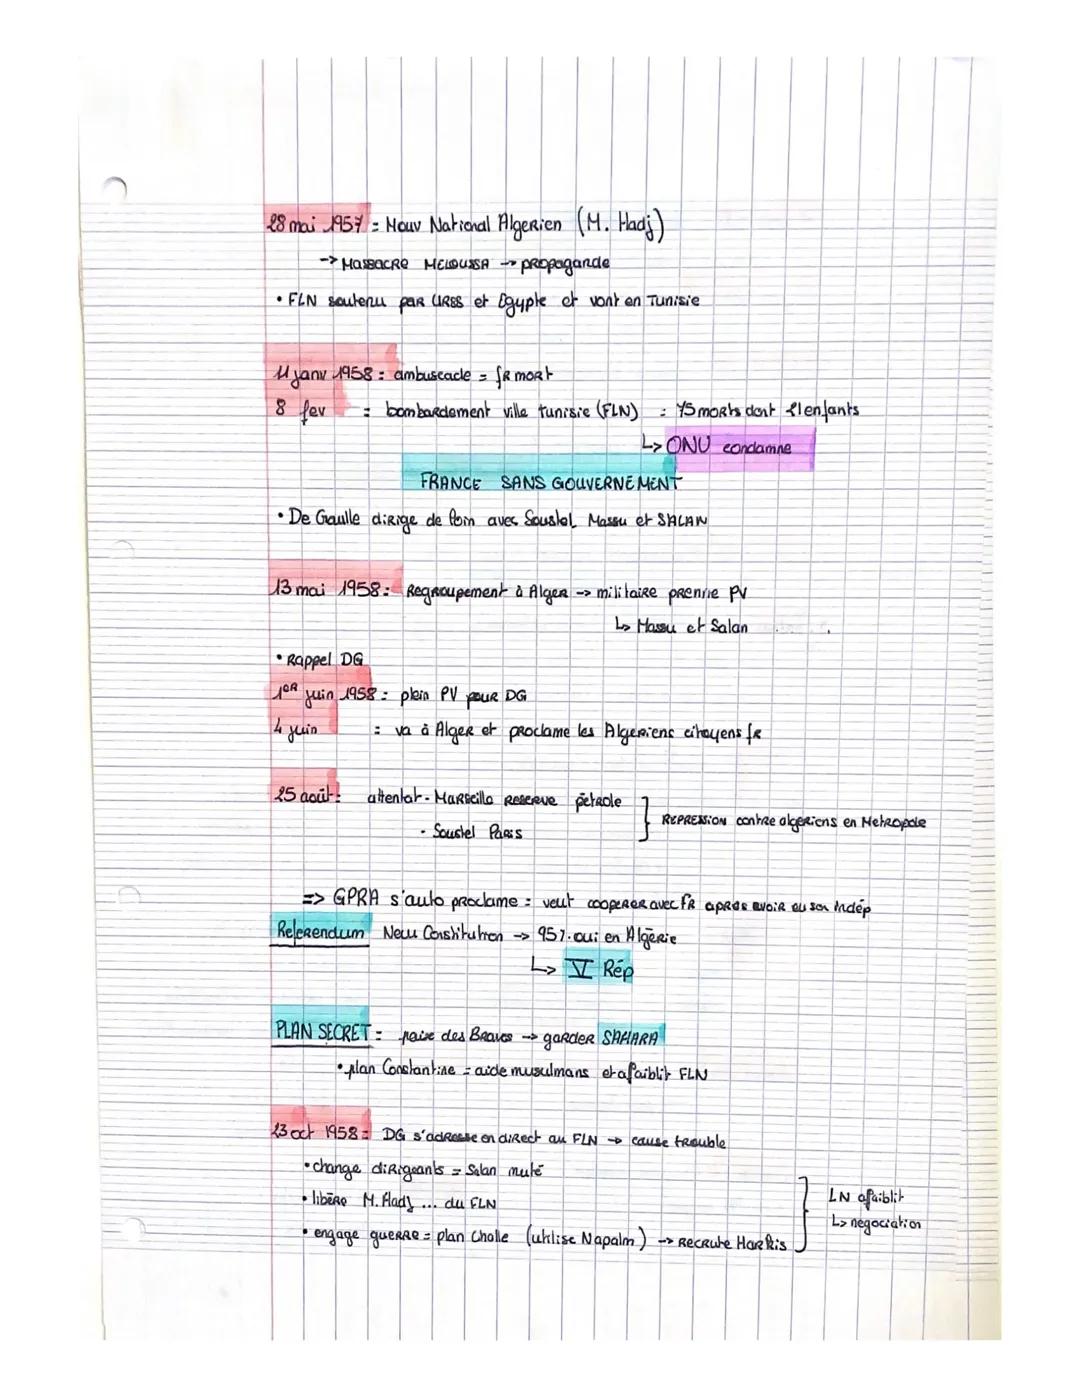 28 mai 1957 = Mouv National Algerien (M. Hadj)
-> Massacre MELOUSSA -> propagande
• FLN soutenu par URSS et Egypte et vont en Tunisie
11 janv 1958 : ambuscade = fr mort
8 fev : bombardement ville tunisie (FLN) : 75 morts dont 21 enfants
↳ ONU condamne
FRANCE SANS GOUVERNEMENT
• De Gaulle dirige de loin avec Soustel Massu et SALAN
13 mai 1958 : Regroupement à Alger -> militaire prenne PV
↳ Massu et Salan
• Rappel DG
1er juin 1958 : plein PV pour DG
4 juin : va à Alger et proclame les Algeriens citoyens fr
25 août : attentat - Marseille reserve pétrole
- Soustel Paris
REPRESSION contre algeriens en Metropole
=> GPRA s'auto proclame : veut cooperer avec FR apres avoir eu son indép
Referendum New Constitution -> 95% oui en Algérie
↳ V Rép
PLAN SECRET = paix des Braves -> garder SAHARA
• plan Constantine = aide musulmans et afaiblit FLN
23 oct 1958 = DG s'adresse en direct au FLN -> cause trouble
• change dirigeants = Salan muté
• libère M. Hadj ... du FLN
• engage guerre = plan Challe (utilise Napalm) -> recrute Harkis
LN afaiblit
↳ negociation